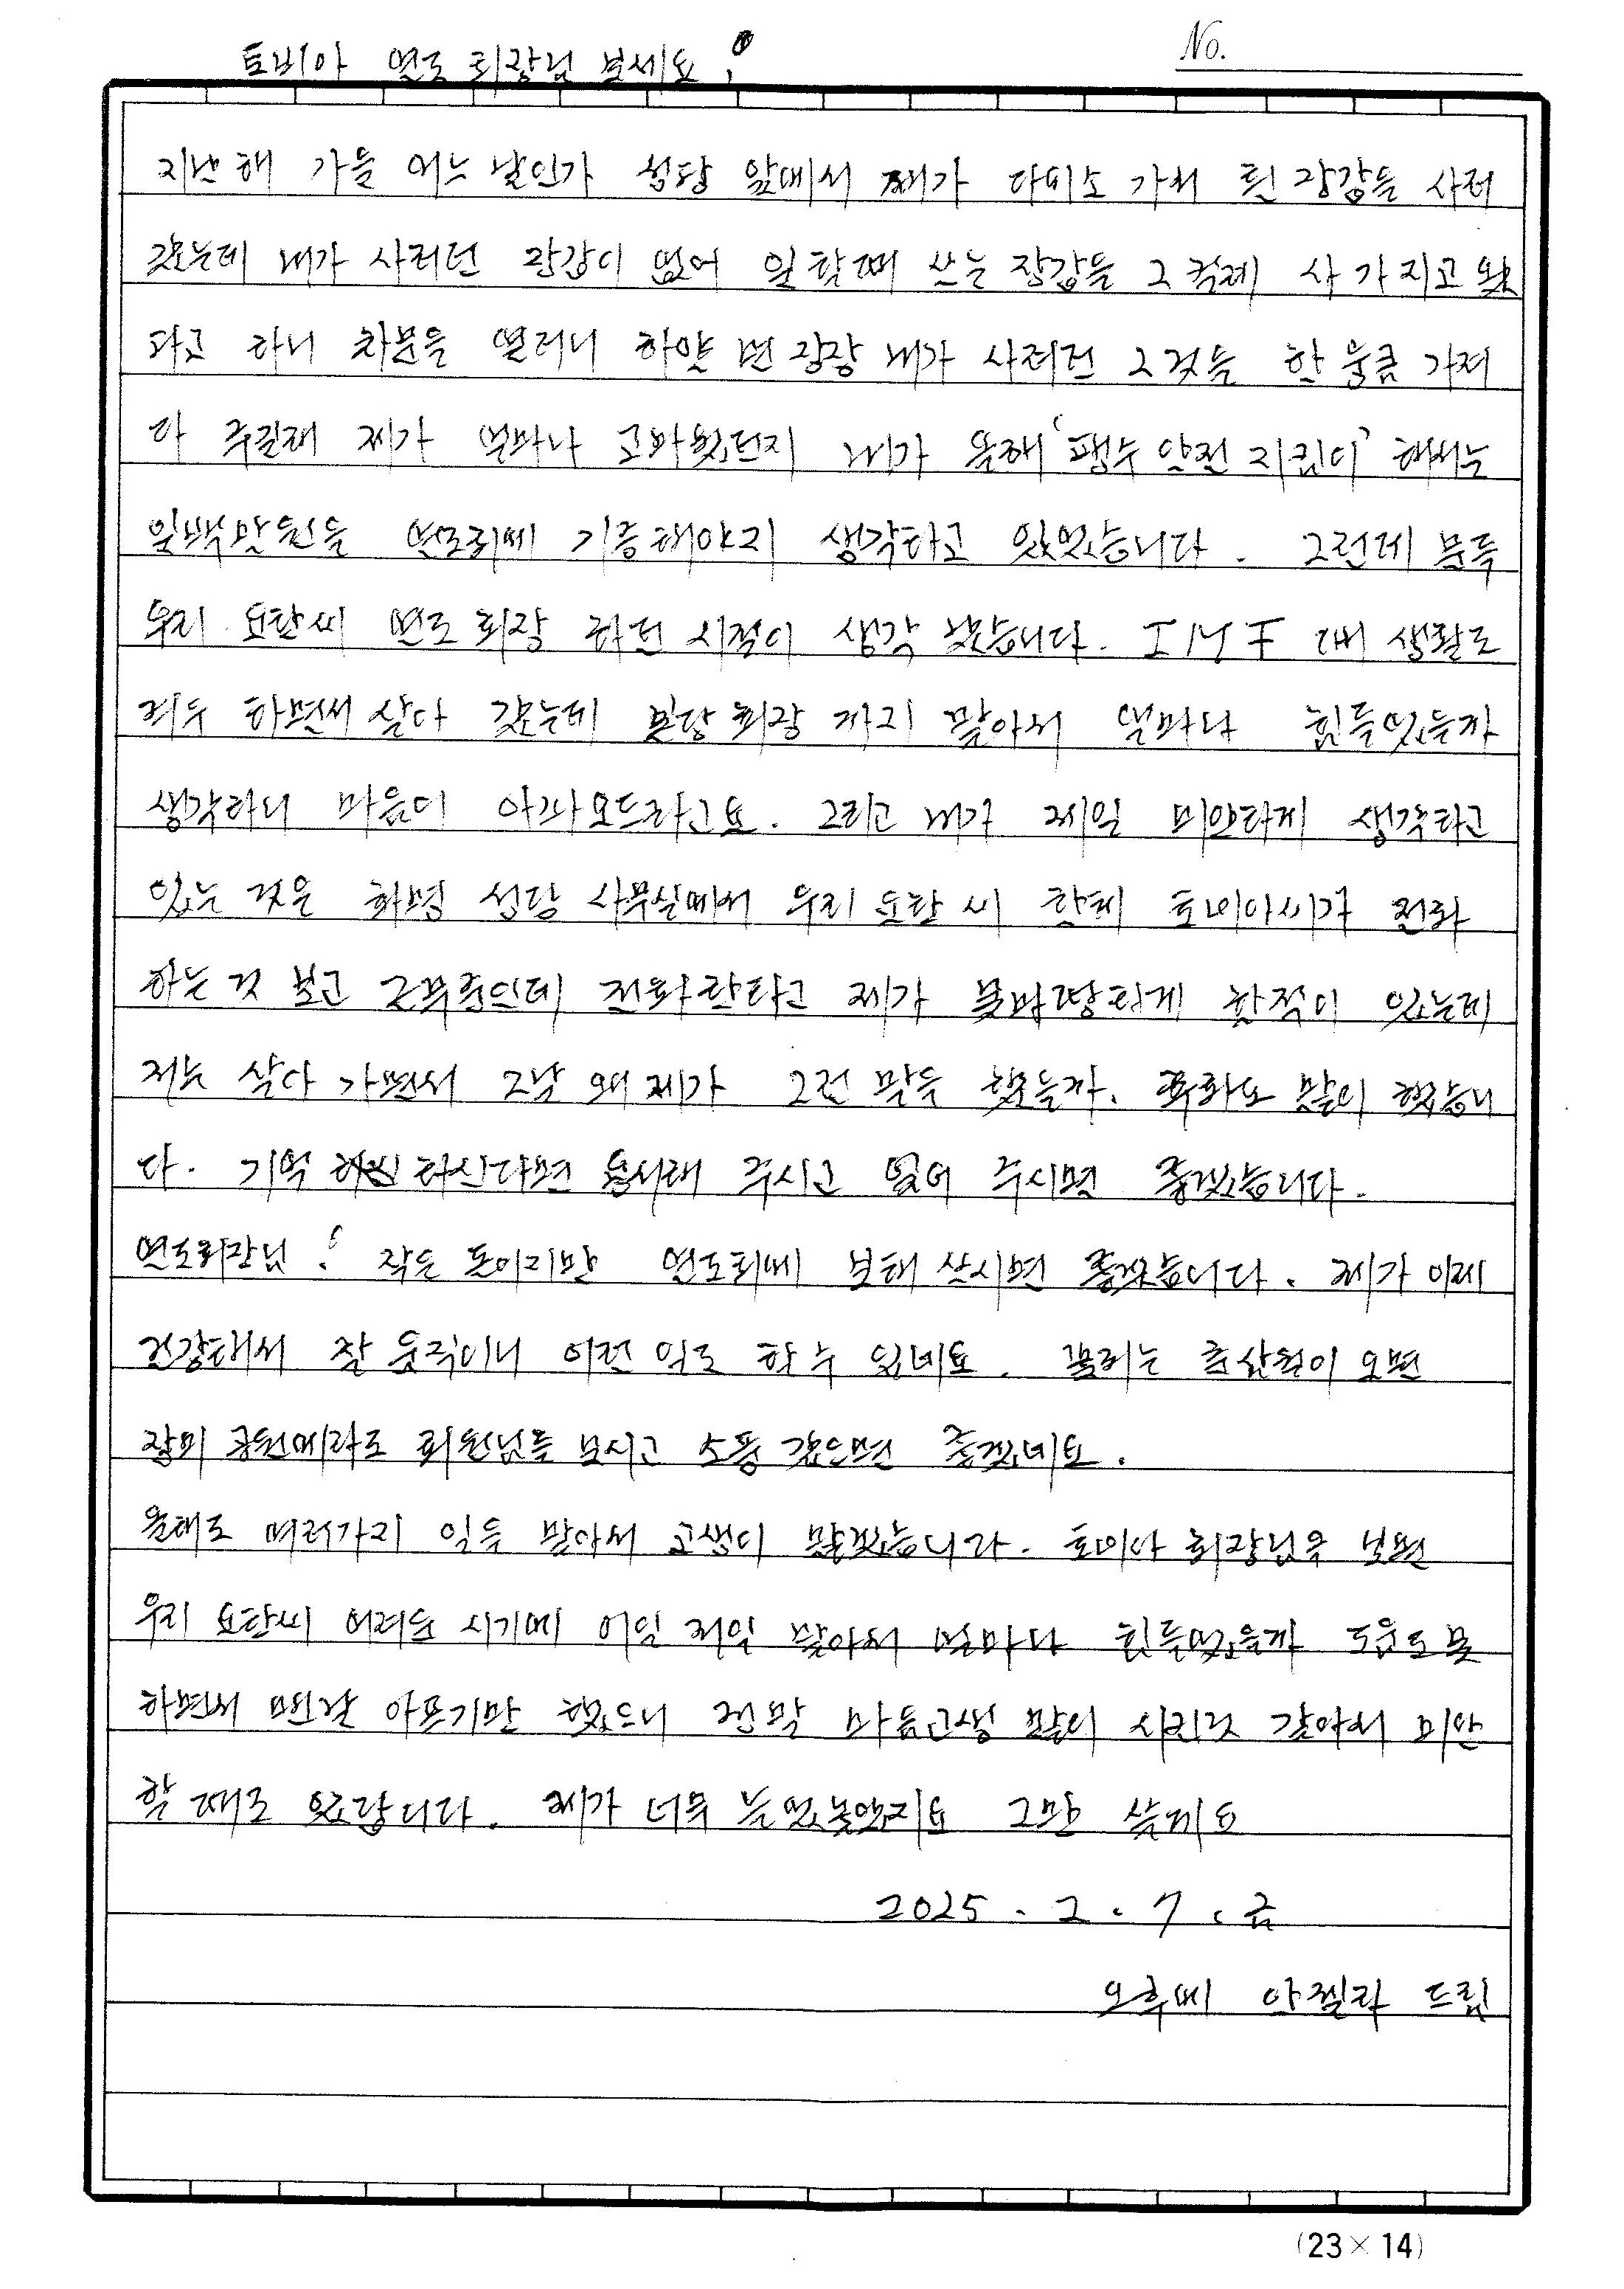 토비아 연도 회장님 보세요!
No.
지난해 가을 어느 날인가 성당 앞에서 제가 다이소 가서 흰 장갑을 사러
갔는데 내가 사려던 장갑이 없어 일할때 쓰는 장갑을 2켤레 사 가지고 왔
다고 하니 차문을 열더니 하얀 면장갑 내가 사려던 그것을 한 움큼 가져
다 주길래 제가 얼마나 고마웠던지 내가 올해 '팽수 안전 지킴이' 해서는
일백만원을 연도회에 기증해야지 생각하고 있었습니다. 그런데 문득
우리 요한씨 연도회장 하던 시절이 생각 났습니다. IMF 때 생활도
하면서 살다 갔는데 본당회장 까지 맡아서 얼마나 힘들었을까
생각하니 마음이 아파오드라고요. 그리고 내가 제일 미안하게 생각하고
있는 것은 화명 성당 사무실에서 우리 요한 씨 한테 토비아씨가 전화
하는 것 보고 근무중인데 전화한다고 제가 못마땅하게 한적이 있는데
저는 살다 가면서 그날 왜 제가 그런 말을 했을까. 후회도 많이 했습니
다. 기억 하신다면 용서해 주시고 잊어 주시면 좋겠습니다.
연도회장님! 작은 돈이지만 연도회에 보태 쓰시면 좋겠습니다. 제가 이제
건강해서 잘 움직이니 이런 일도 할 수 있네요. 꽃피는 춘삼월이 오면
장미 공원에라도 회원님들 모시고 소풍 갔으면 좋겠네요.
올해도 여러가지 일을 맡아서 고생이 많겠습니다. 토비아 회장님을 보면
우리 요한씨 어려운 시기에 어임 저임 맡아서 얼마나 힘들었을까 도움도 못
하면서 맨날 아프기만 했으니 정말 마음고생 많이 시킨것 같아서 미안
할 때도 있답니다. 제가 너무 늘어놓았지요 그만 쓸게요
2025. 2. 7. 금
오후에 안젤라 드림
(23×14)